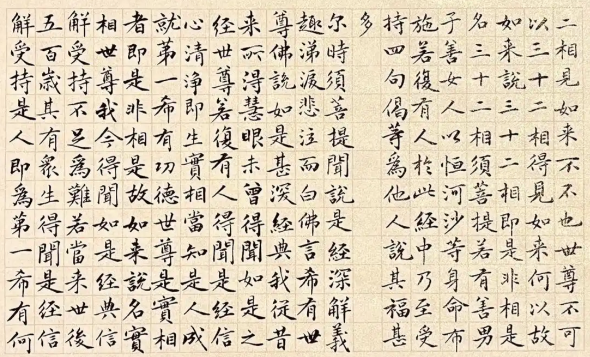 二相見如来不不也世尊不可
以三十二相得見如来何以故
如来說三十二相即是非相是
名三十二相須菩提若有善男
子善女人以恒河沙等身命布
施若復有人於此經中乃至受
持四句偈等爲他人說其福甚
多
尔時須菩提聞說是經深解義
趣涕淚悲泣而白佛言希有世
尊佛說如是甚深經典我從昔
来所得慧眼未曾得聞如是之
經世尊若復有人得聞是經信
心清淨即生實相當知是人成
就第一希有功德世尊是實相
者即是非相是故如来說名實
相世尊我今得聞如是經典信
解受持不足爲難若當来世後
五百歲其有眾生得聞是經信
解受持是人即爲第一希有何